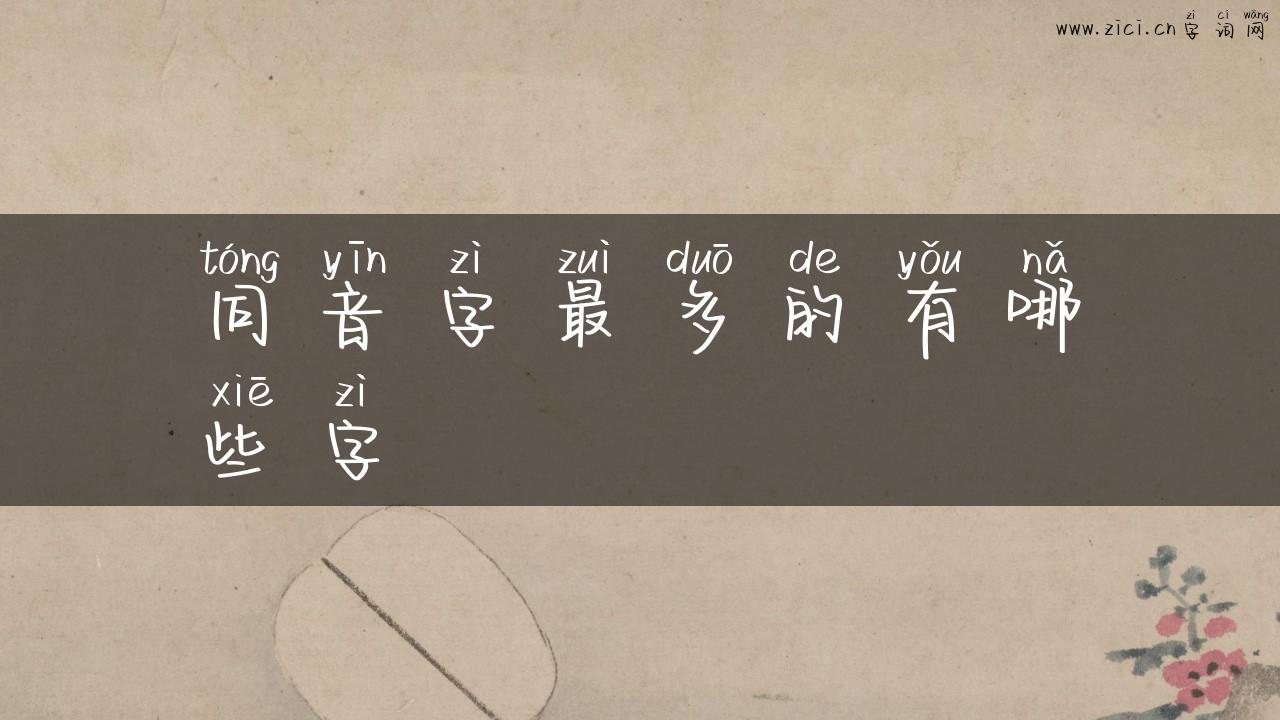 zì cí wǎng
www.zici.cn字词网
tóng yīn zì zuì duō de yǒu nǎ
同音字最多的有哪
xiē zì
些字